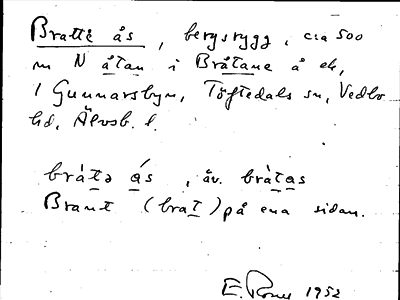 Bratte ås, bergsrygg, c:a 500
m N åtan i Bråtane å ek,
1 Gunnarsbyn, Töftedals sn, Vedbo
hd, Älvsb. l.
bràtə ás, äv. bràtas
Brant (brat) på ena sidan.
1952